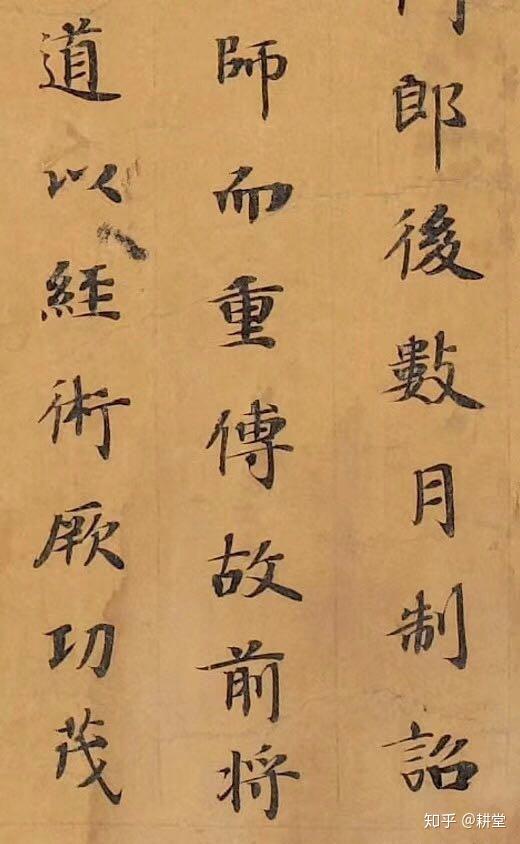 郎後數月制詔
師而重傅故前将
道以經術厥功茂
知乎 @耕堂